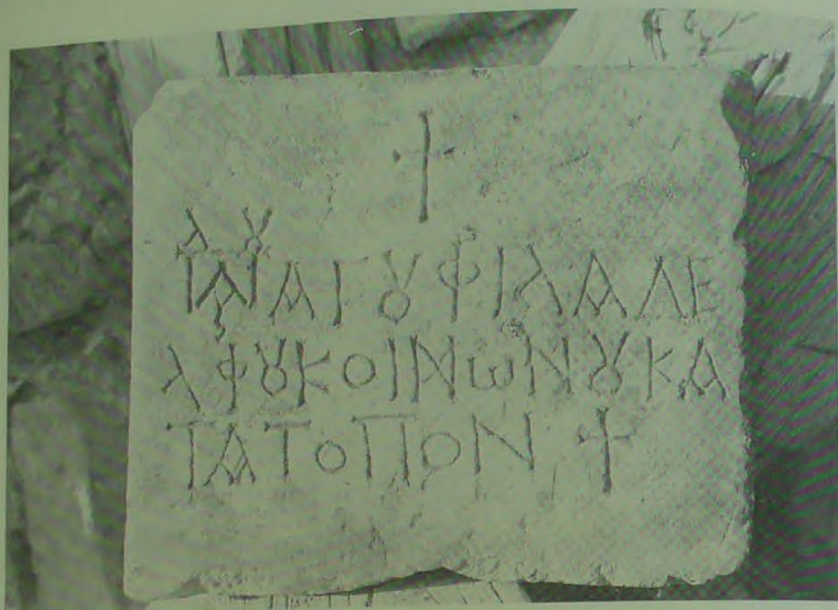 †
ΑΓȢ ΦΙΛΑΛΕ
ΛΦȢ ΚΟΙΝΩΝȢ ΚΑ
ΤΑ ΤΟΠΟΝ †